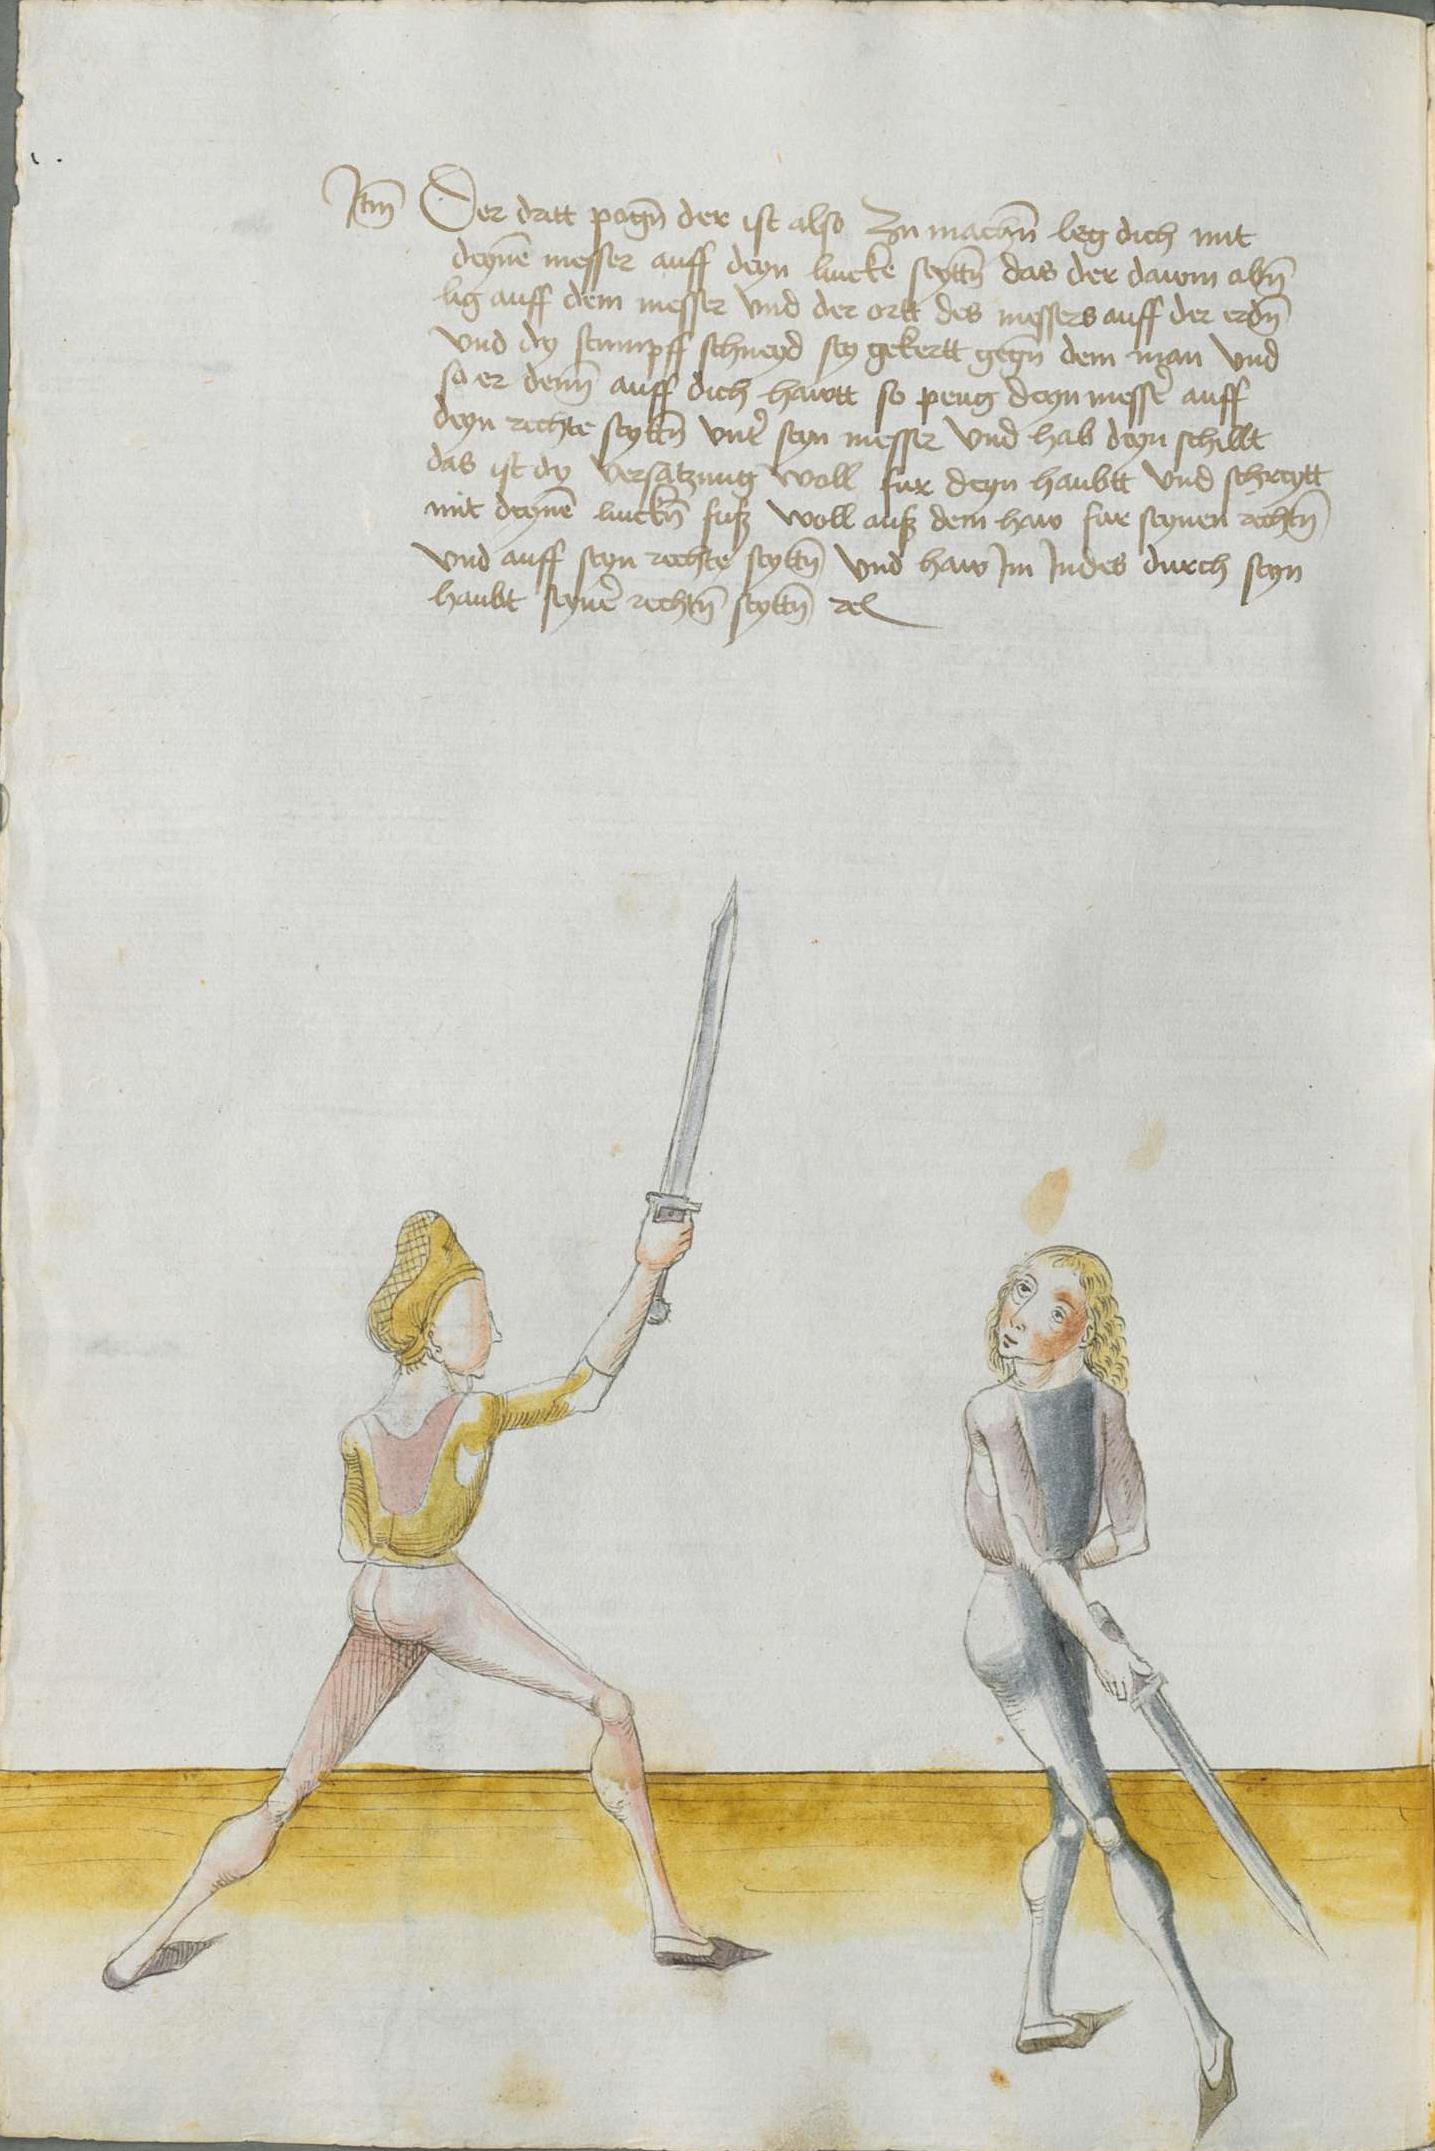 Itm̄ Der dritt pogn̄ der ist also Zu machn̄ leg dich mit
deynē messer auff deyn lincke seyttn̄ das der dawm obn̄
lig auff dem messer vnd der ortt des messers auff der erdn̄
vnd dy stumpff schneyd sey gekertt gegn̄ dem man vnd
so er denn̄ auff dich hawtt so peug deyn messer̄ auff
deyn rechte seyttn̄ vnter̄ seyn messer vnd hab deyn schillt
das ist dy versatzung woll fur deyn haubtt vnd schreytt
mit deynē linckn̄ fuß woll auß dem haw fur seynen rechtn̄
vnd auff seyn rechte seyttn̄ vnd haw Im Indes durch seyn
haubt seyner̄ rechtn̄ seyttn̄ rc